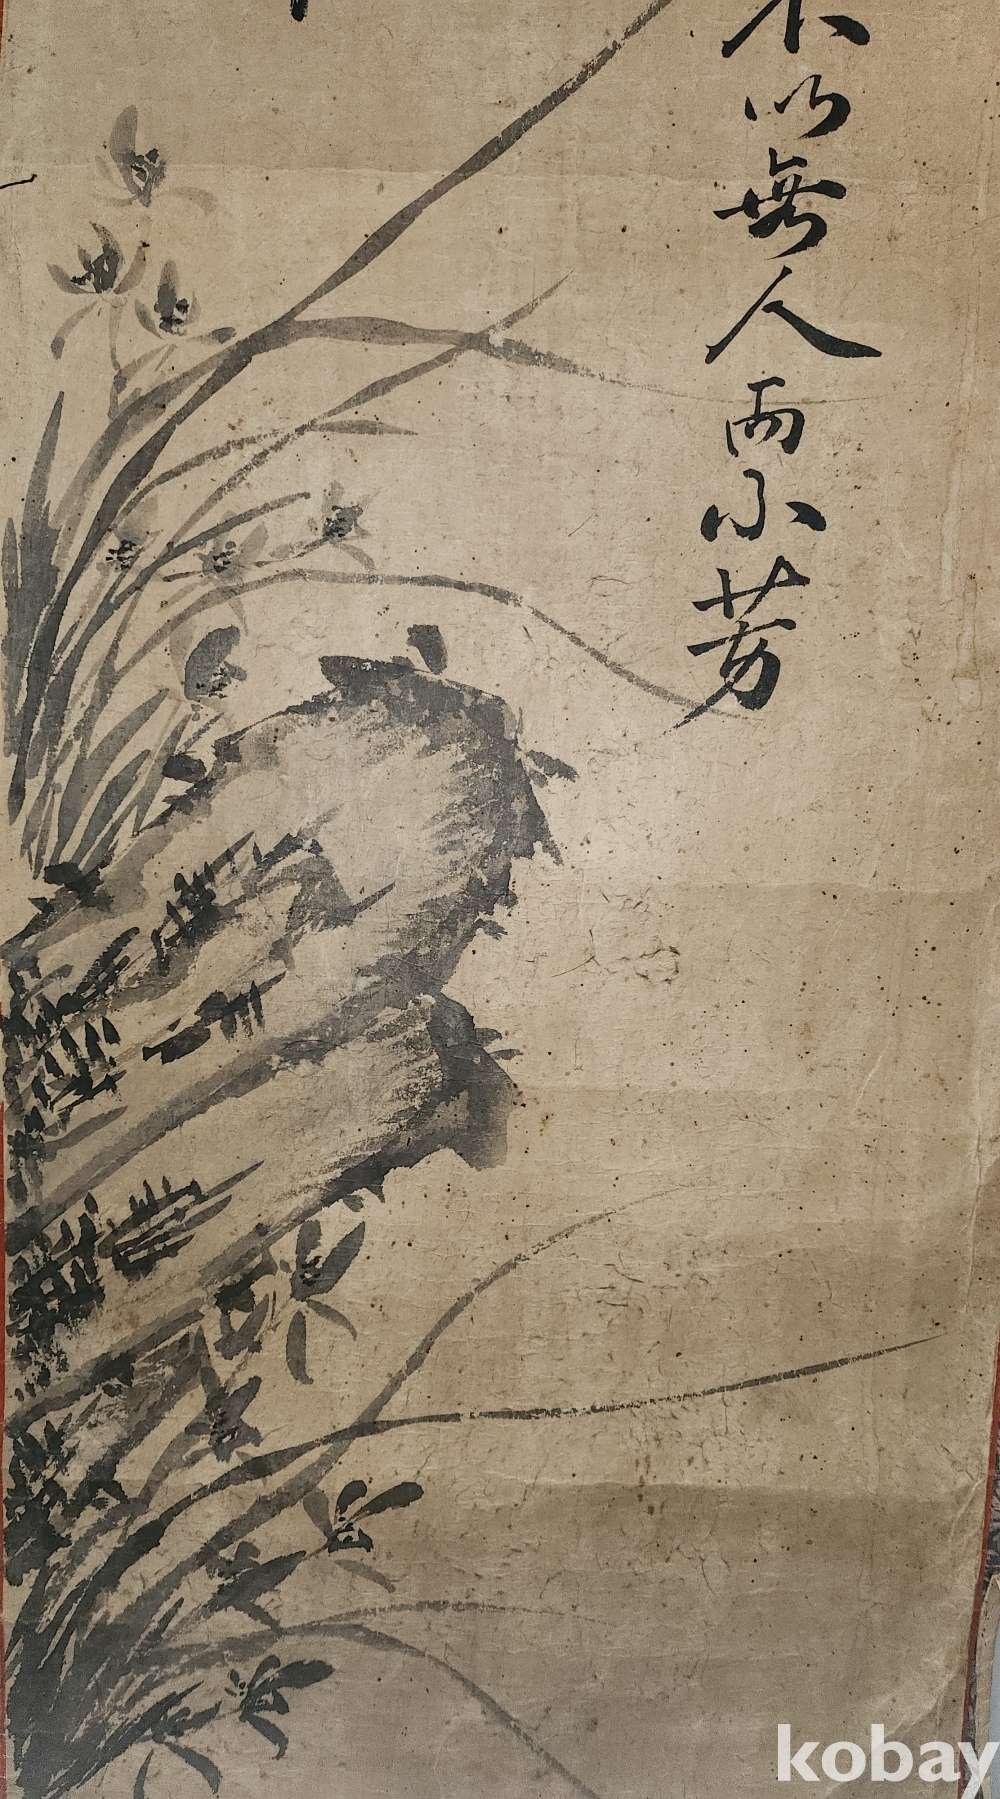 不以無人而不芳
kobay